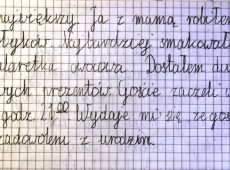 największy. Ja z mamą robiłem
tyków. Najbardziej smakowała
alaretka owocowa. Dostałem du
wych prezentów Goście zaczęli w
godz. 21⁰⁰ Wydaje mi się że gos
zadowoleni z urodzin.